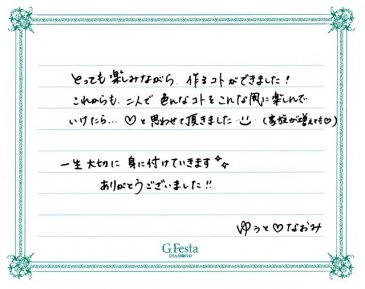 とっても楽しみながら、作るコトができました！
これからも、二人で色んなコトをこんな風に楽しんで
いけたら…♡と思わせて頂きました (家族が増えても♡)
一生大切に身に付けていきます
ありがとうございました!!
ゆうと♡なおみ
G.Festa
DIAMOND